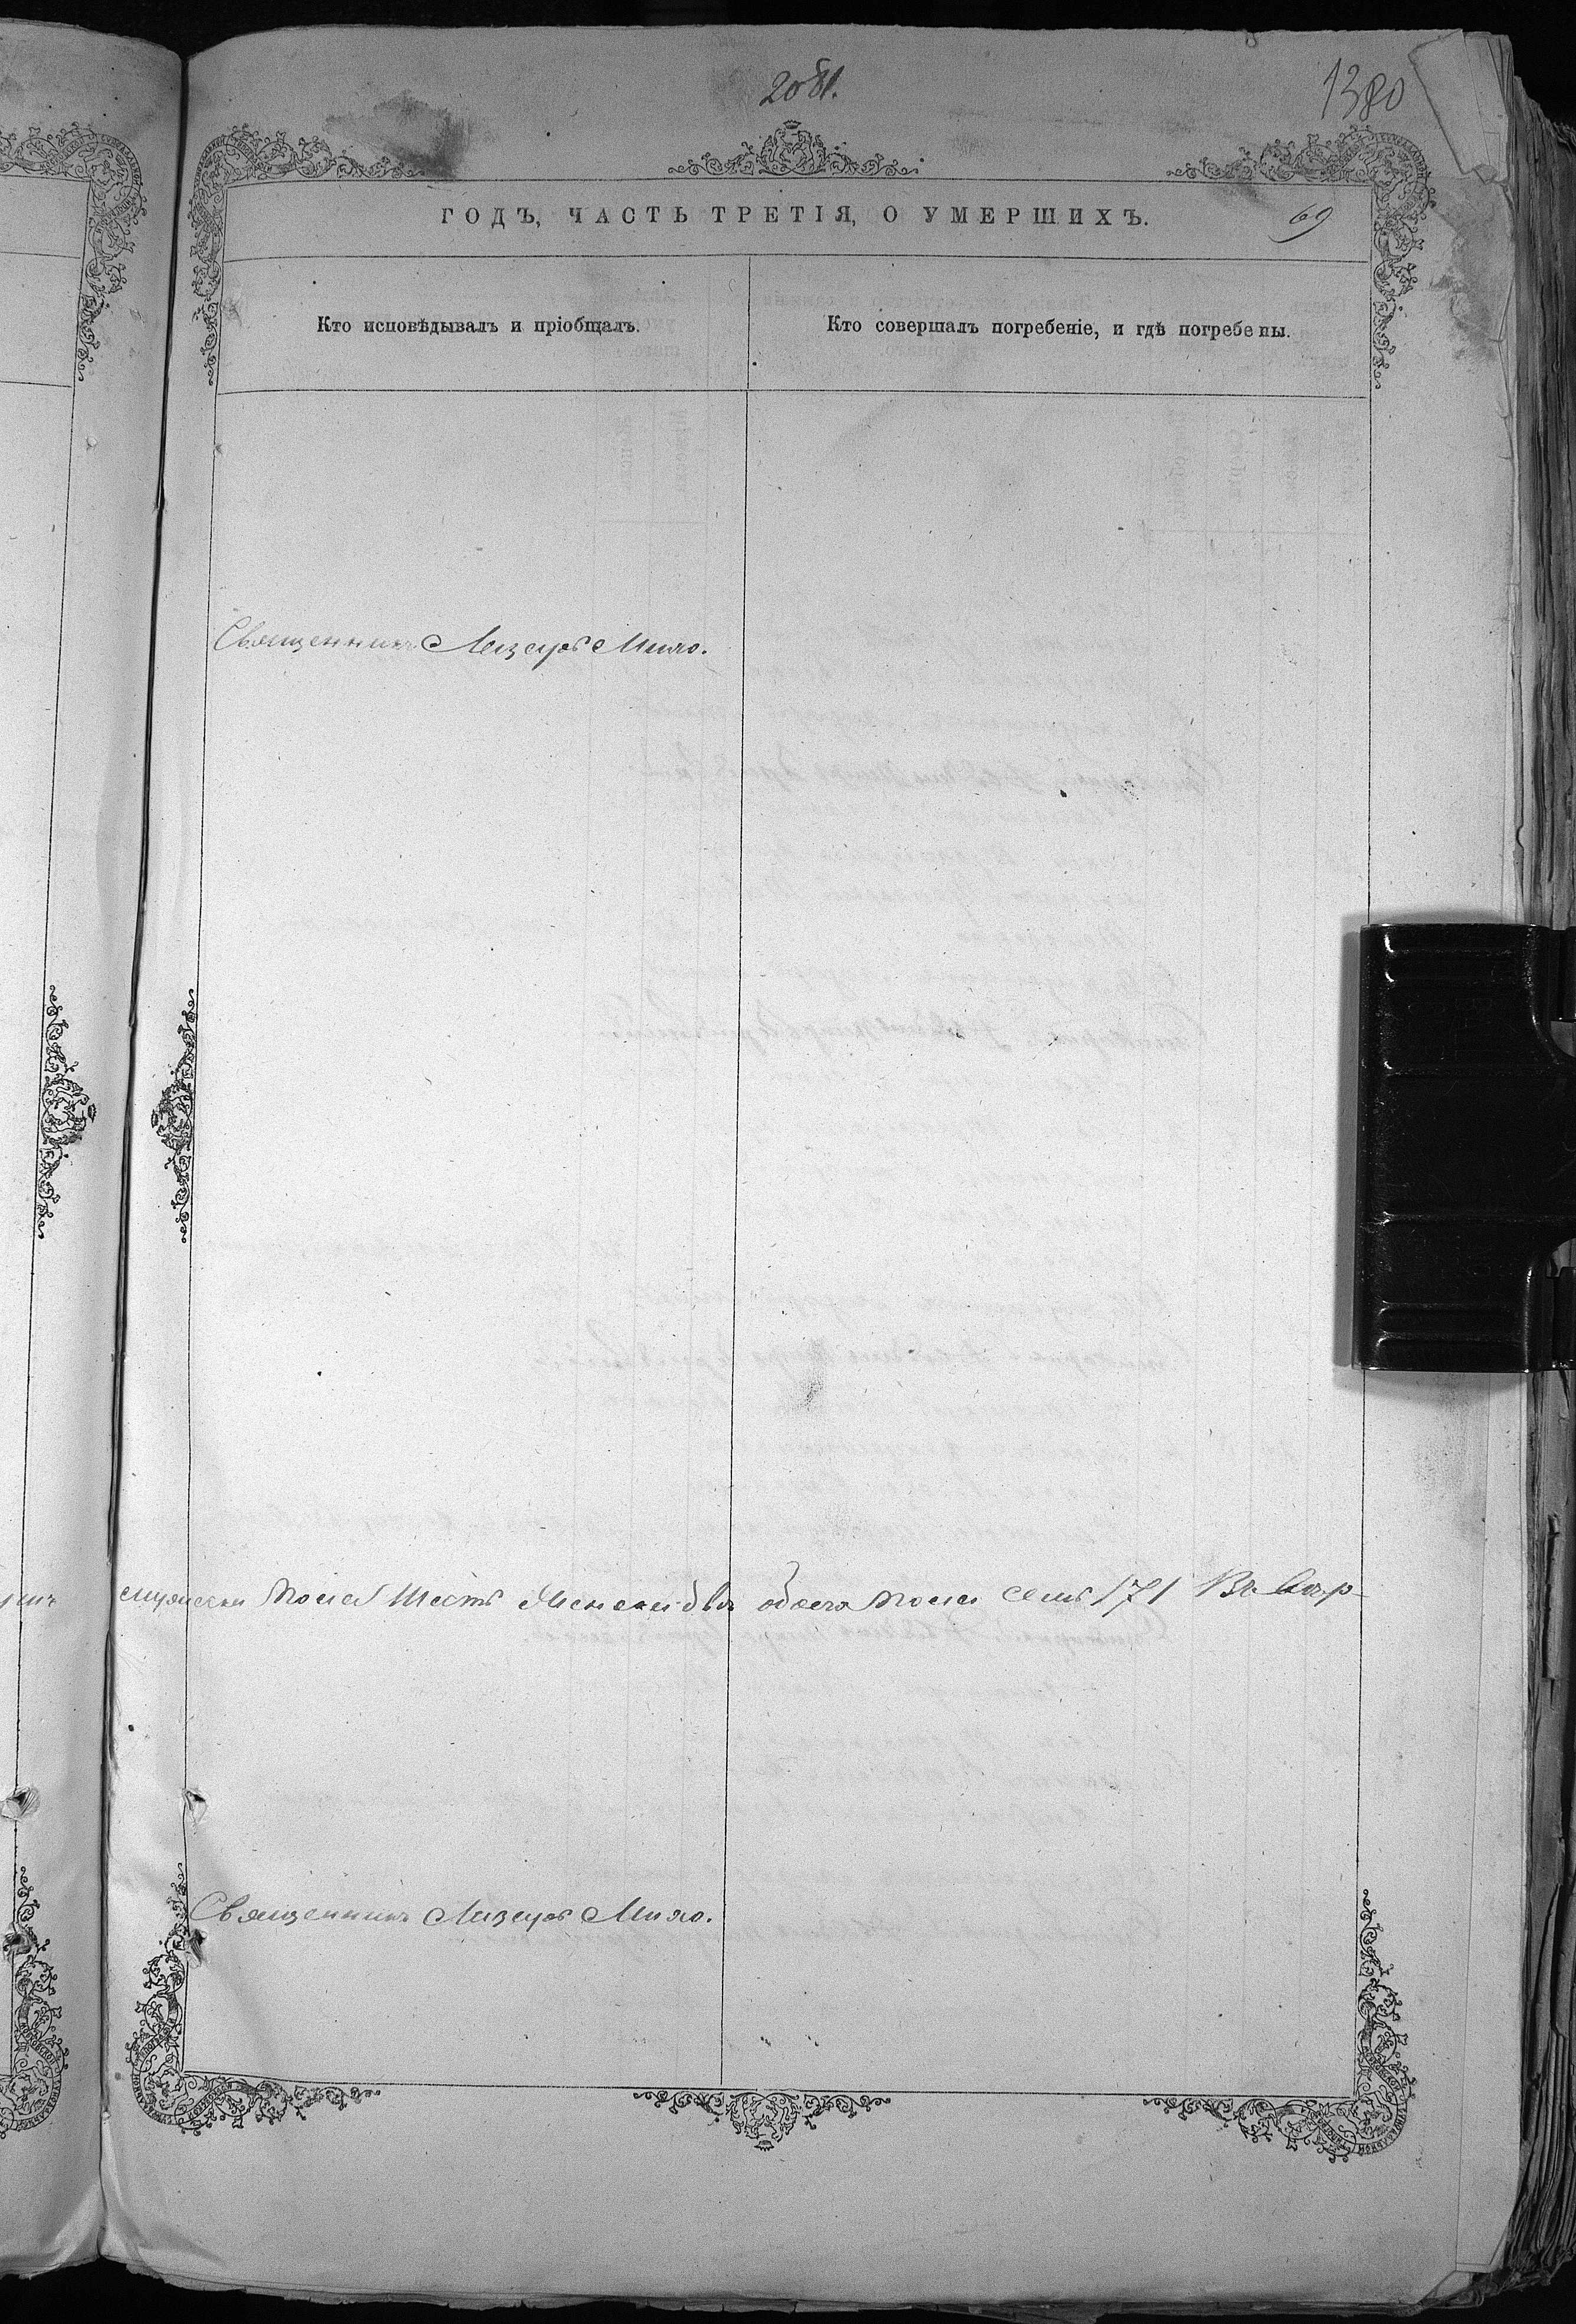 2081.
1380
ГОДЪ, ЧАСТЬ ТРЕТІЯ, О УМЕРШИХЪ.
69
Кто исповѣдывалъ и пріобщалъ.
Кто совершалъ погребеніе, и гдѣ погребены.
Священникъ Лазарь Мило.
мужеска пола шесть женска два обоего пола семь /7/
Священникъ Лазарь Мило.